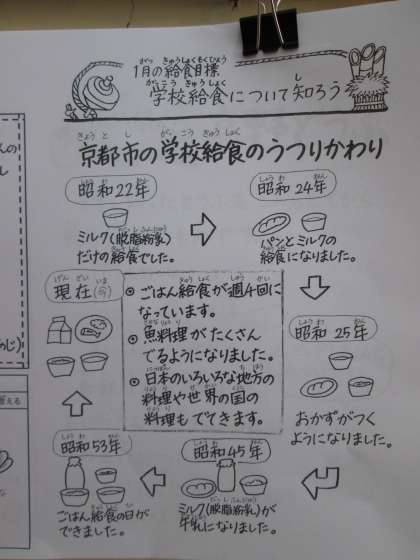 1月の給食目標
学校給食について知ろう
京都市の学校給食のうつりかわり
昭和22年
ミルク(脱脂粉乳)
だけの給食でした。
昭和24年
パンとミルクの
給食になりました。
昭和25年
おかずがつく
ようになりました。
昭和45年
ミルク(脱脂粉乳)が
牛乳になりました。
昭和53年
ごはん給食の日が
できました。
現在(今)
◎ごはん給食が週4回に
なっています。
◎魚料理がたくさん
でるようになりました。
◎日本のいろいろな地方の
料理や世界の国の
料理もでてきます。